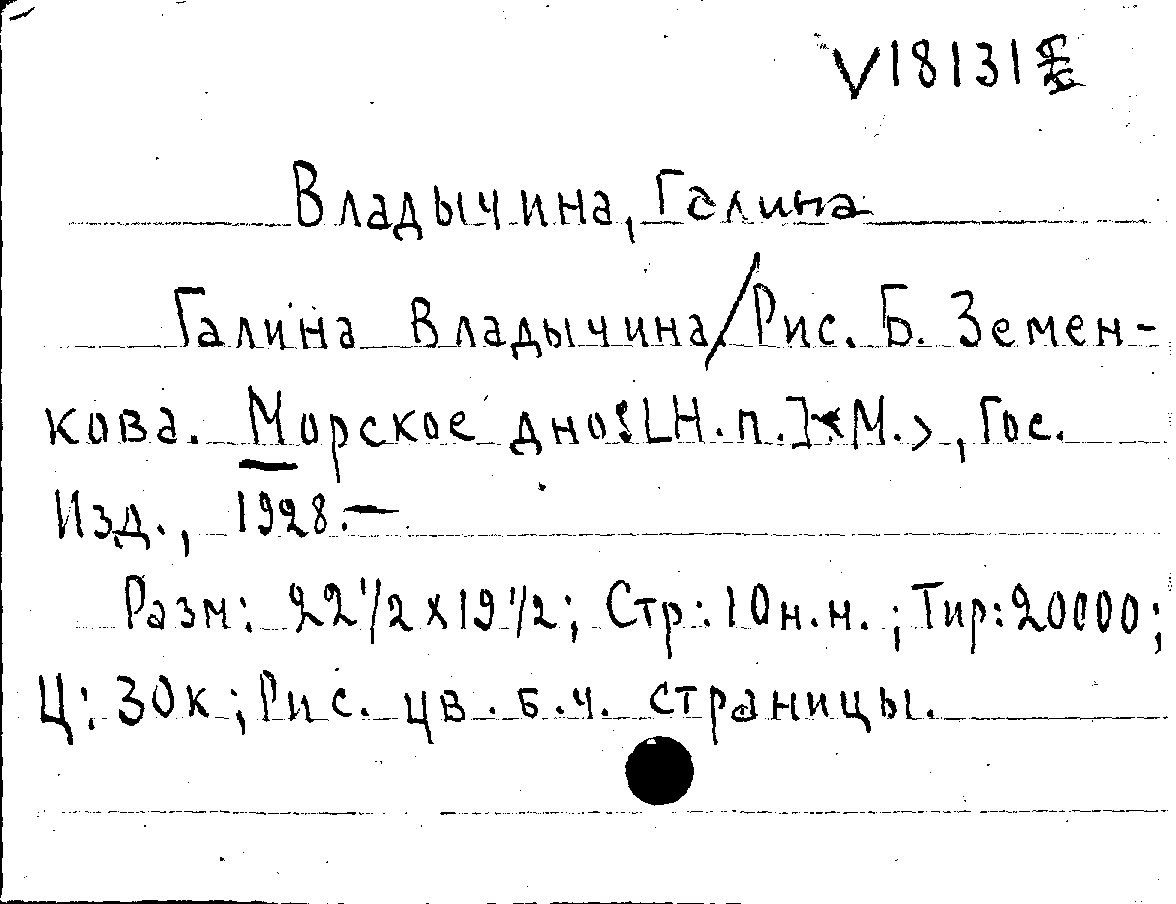 V18131
Владычина, Галина
Галина Владычина/Рис. Б. Земен-
кова. Морское дно: [Н.п.] <М.>, Гос.
Изд., 1928.—
Разм: 22 1/2 x 19 1/2; Стр: 10 н.н.; Тир: 20000;
Ц: 30к; Рис. цв. б.ч. страницы.